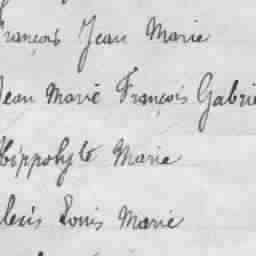 François Jean Marie
Jean Marie François Gabrie
Hippolyte Marie
Alexis Louis Marie